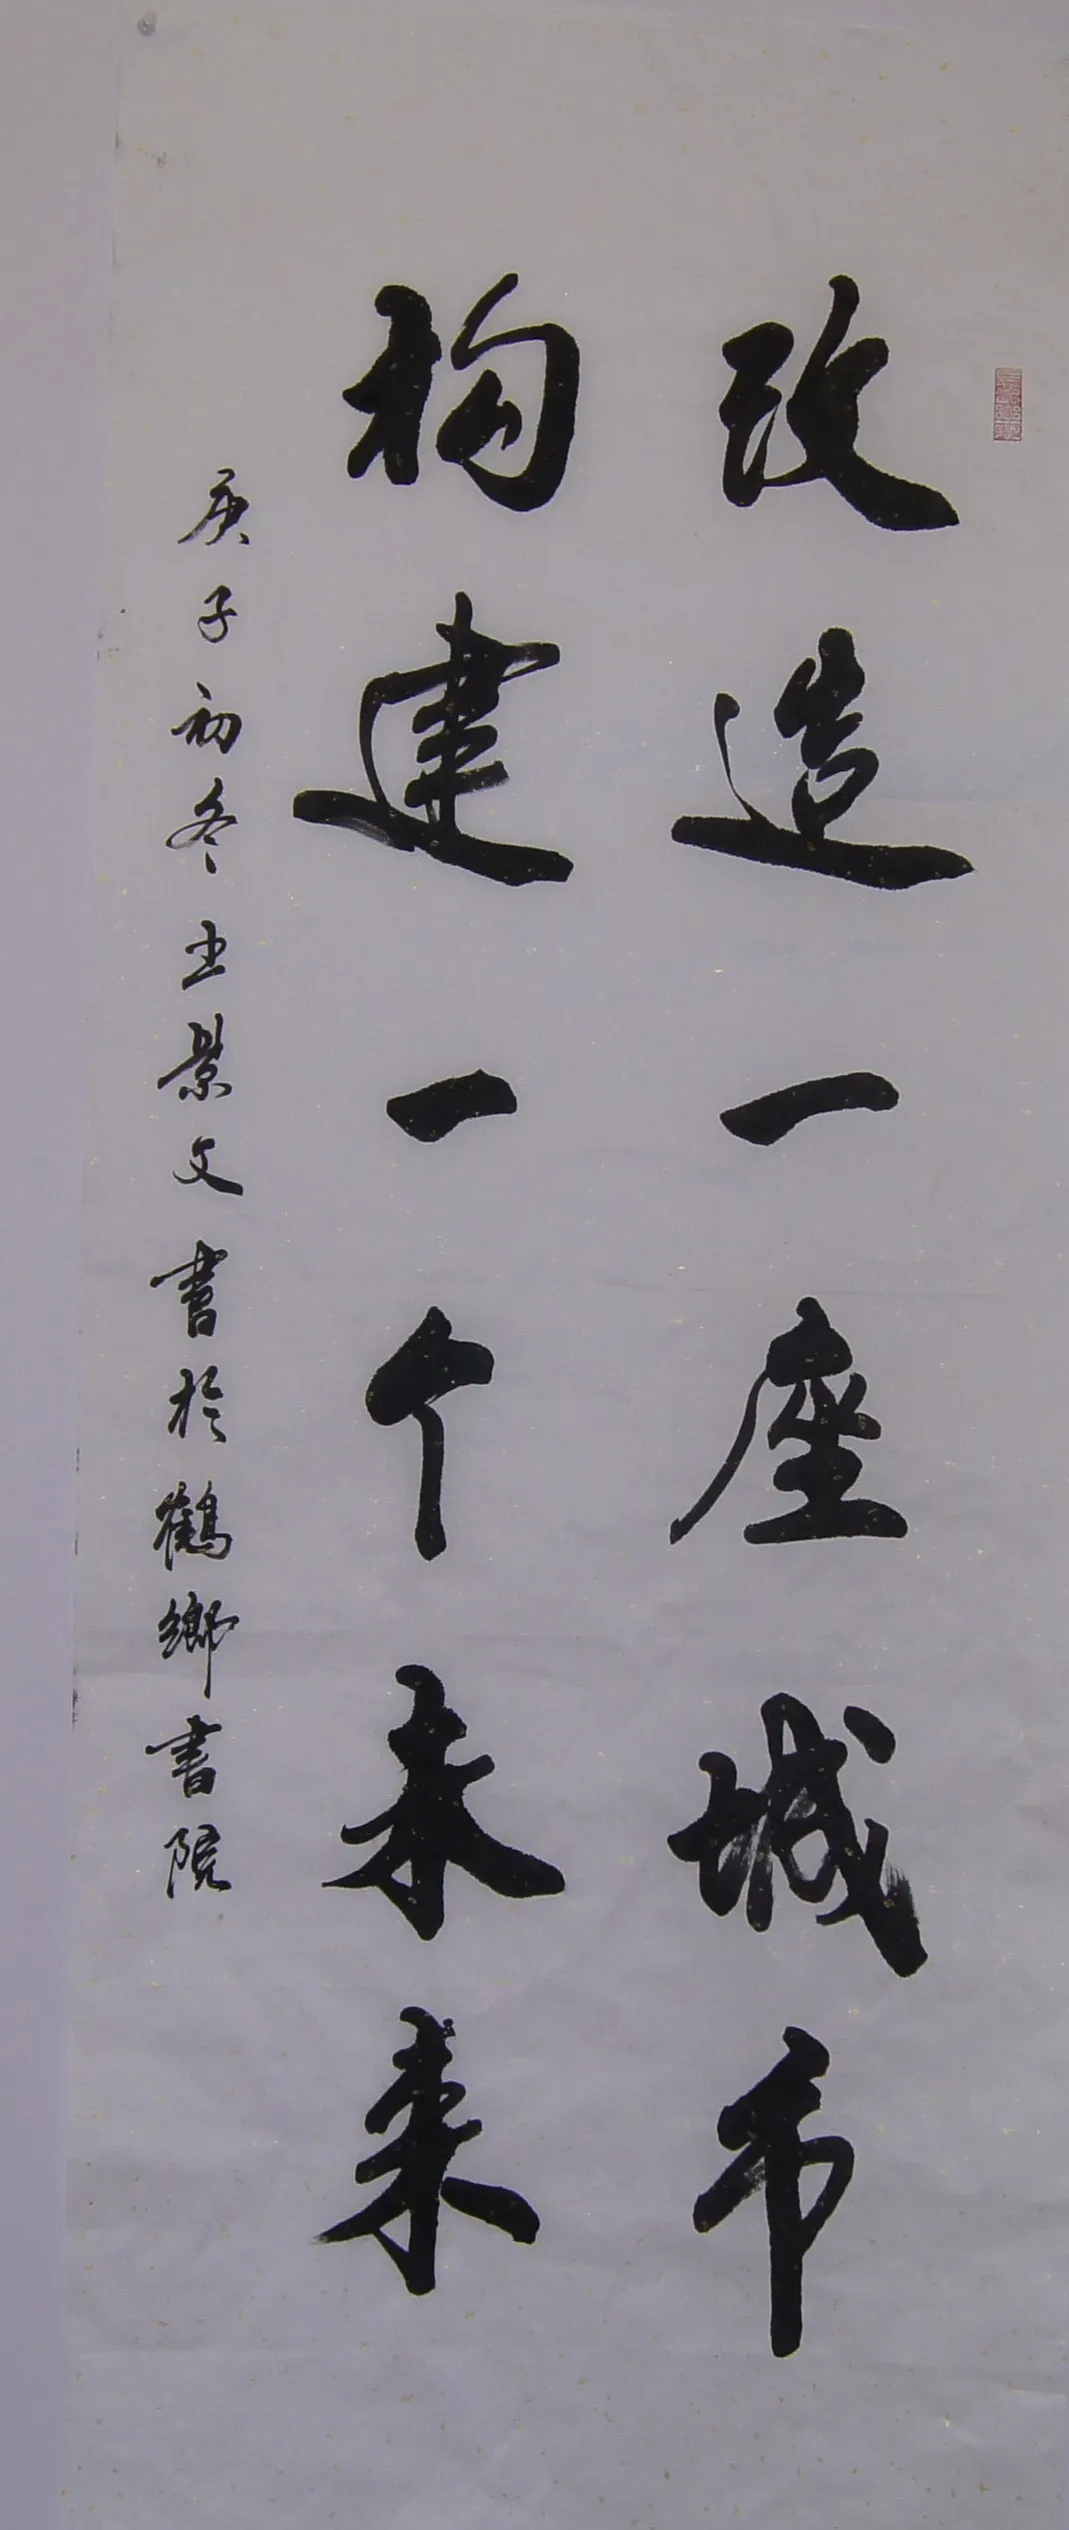 改造一座城市
构建一个未来
庚子初冬王景文書於鶴鄉書院